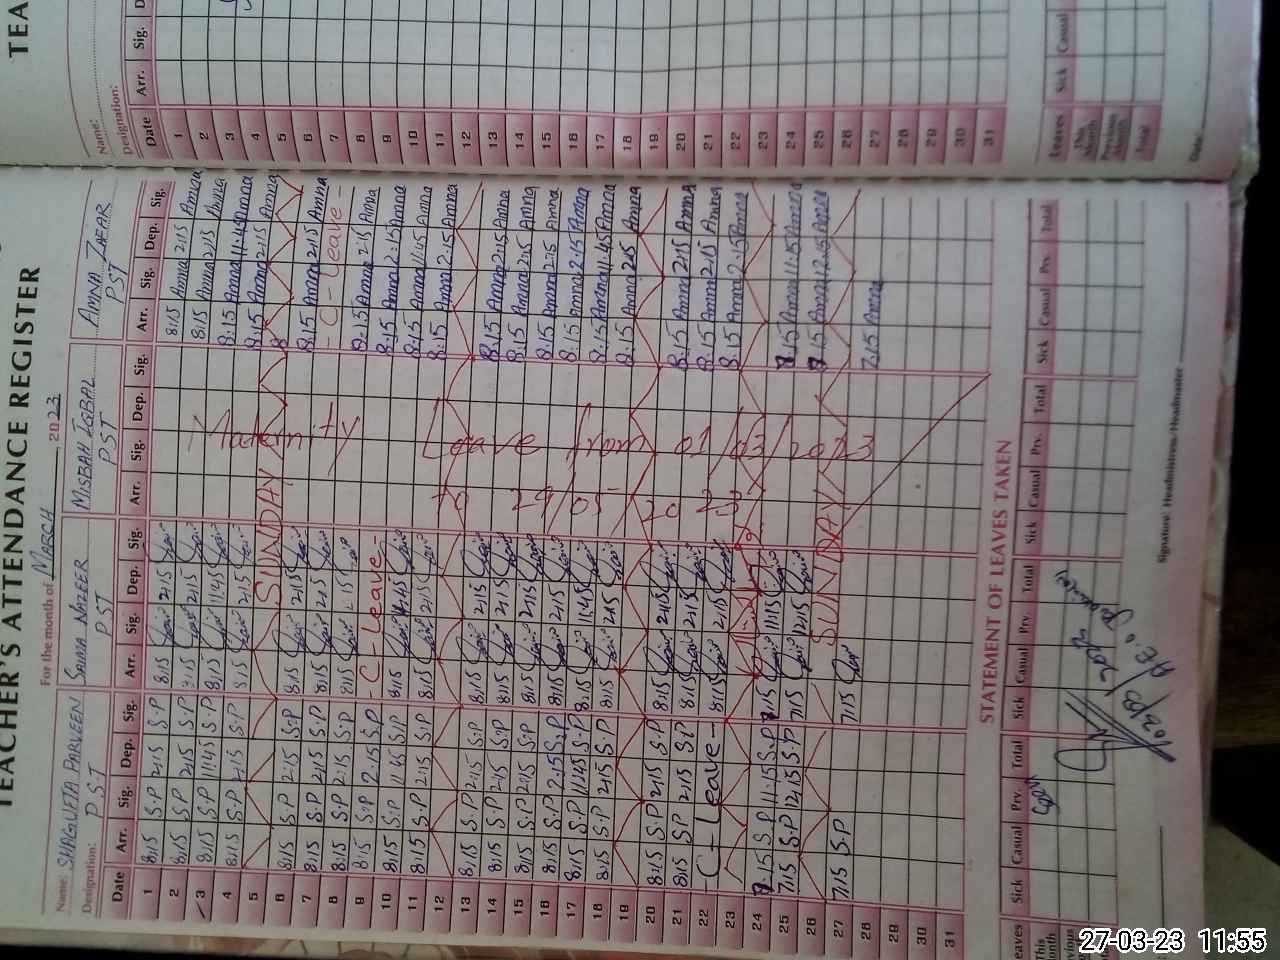 TEACHER'S ATTENDANCE REGISTER
For the month of March, 2023
Name: SHAGUFTA PARVEEN SAIMA NAZEER MISBAH IQBAL AMNA ZAFAR
Designation: PST PST PST PST
Date Arr. Sig. Dep. Sig. Arr. Sig. Dep. Sig. Arr. Sig. Dep. Sig. Arr. Sig. Dep. Sig.
1 8:15 S.P 2:15 S.P 8:15 2:15 8:15 Amna 2:15 Amna
2 8:15 S.P 2:15 S.P 8:15 2:15 8:15 Amna 2:15 Amna
3 8:15 S.P 11:45 S.P 8:15 11:45 8:15 Amna 11:45 Amna
4 8:15 S.P 2:15 S.P 8:15 2:15 8:15 Amna 2:15 Amna
5 SUNDAY
6 8:15 S.P 2:15 S.P 8:15 2:15 8:15 Amna 2:15 Amna
7 8:15 S.P 2:15 S.P 8:15 2:15 - C - Leave -
8 8:15 S.P 2:15 S.P 8:15 2:15 8:15 Amna 2:15 Amna
9 8:15 S.P 2:15 S.P - C - Leave - 8:15 Amna 2:15 Amna
10 8:15 S.P 11:45 S.P 8:15 11:45 8:15 Amna 11:45 Amna
11 8:15 S.P 2:15 S.P 8:15 2:15 8:15 Amna 2:15 Amna
12
13 8:15 S.P 2:15 S.P 8:15 2:15 8:15 Amna 2:15 Amna
14 8:15 S.P 2:15 S.P 8:15 2:15 8:15 Amna 2:15 Amna
15 8:15 S.P 2:15 S.P 8:15 2:15 8:15 Amna 2:15 Amna
16 8:15 S.P 2:15 S.P 8:15 2:15 8:15 Amna 2:15 Amna
17 8:15 S.P 11:45 S.P 8:15 11:45 8:15 Amna 11:45 Amna
18 8:15 S.P 2:15 S.P 8:15 2:15 8:15 Amna 2:15 Amna
19
20 8:15 S.P 2:15 S.P 8:15 2:15 8:15 Amna 2:15 Amna
21 8:15 S.P 2:15 S.P 8:15 2:15 8:15 Amna 2:15 Amna
22 - C - Leave - 8:15 2:15 8:15 Amna 2:15 Amna
23
24 7:15 S.P 11:15 S.P 7:15 11:15 7:15 Amna 11:15 Amna
25 7:15 S.P 12:15 S.P 7:15 12:15 7:15 Amna 12:15 Amna
26 SUNDAY
27 7:15 S.P 7:15 7:15 Amna
28
29
30
31
Maternity Leave from 01/03/2023
to 29/05/2023
STATEMENT OF LEAVES TAKEN
Leaves Sick Casual Prv. Total Sick Casual Prv. Total Sick Casual Prv. Total Sick Casual Prv. Total
This Month
Previous
Signature: Headmistress/Headmaster
TEA
Name:
Designation:
Date Arr. Sig.
1
2
3
4
5
6
7
8
9
10
11
12
13
14
15
16
17
18
19
20
21
22
23
24
25
26
27
28
29
30
31
Leaves Sick Casual
This Month
Previous Month
Total
Date:
27-03-23 11:55